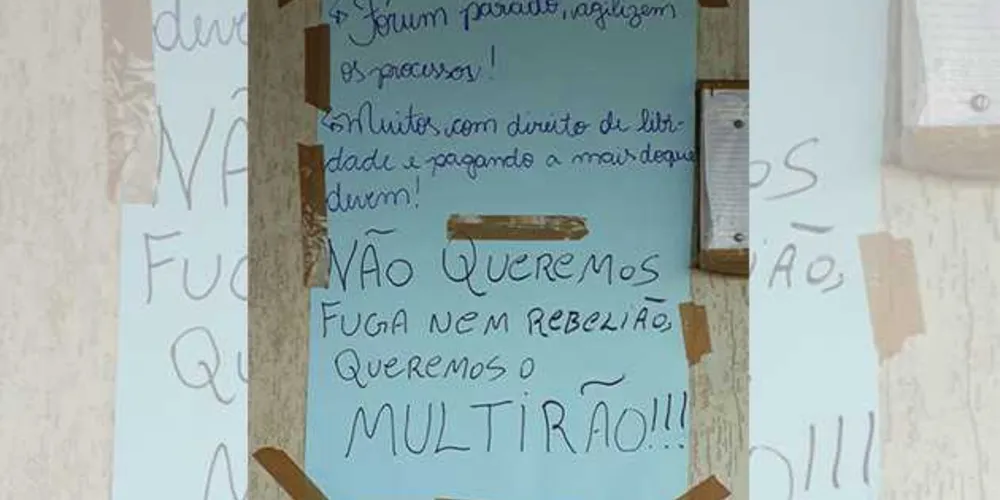 → Fórum parado, agilizem
os processos!
→ Muitos com direito de liber-
dade e pagando a mais do que
devem!
NÃO QUEREMOS
FUGA NEM REBELIÃO,
QUEREMOS O
MULTIRÃO!!!